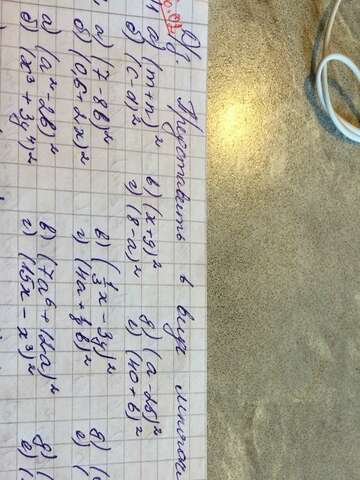 Представить в виде многоч
а) (m+n)² в) (x+9)² д) (a-25)²
б) (c-d)² г) (8-a)² е) (40+b)²
а) (7-8b)² в) (⅓x-3y)² д) (
б) (0,6+2x)² г) (4a+½b)² е) (
а) (a²-2b)² в) (7a⁶+12a)² д) (
б) (x³+3y⁴)² г) (15x-x³)² е) (